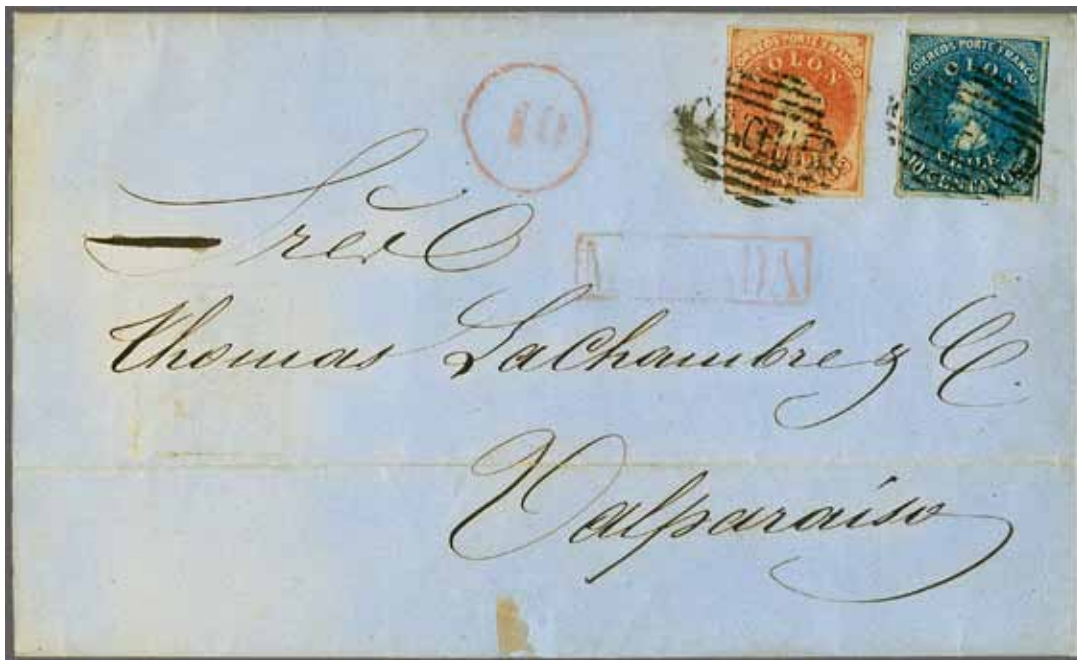 CORREOS PORTE FRANCO
COLON
CHILE
CORREOS PORTE FRANCO
COLON
CHILE
10 CENTAVOS
10
Thomas LaChambre y C.
Valparaiso